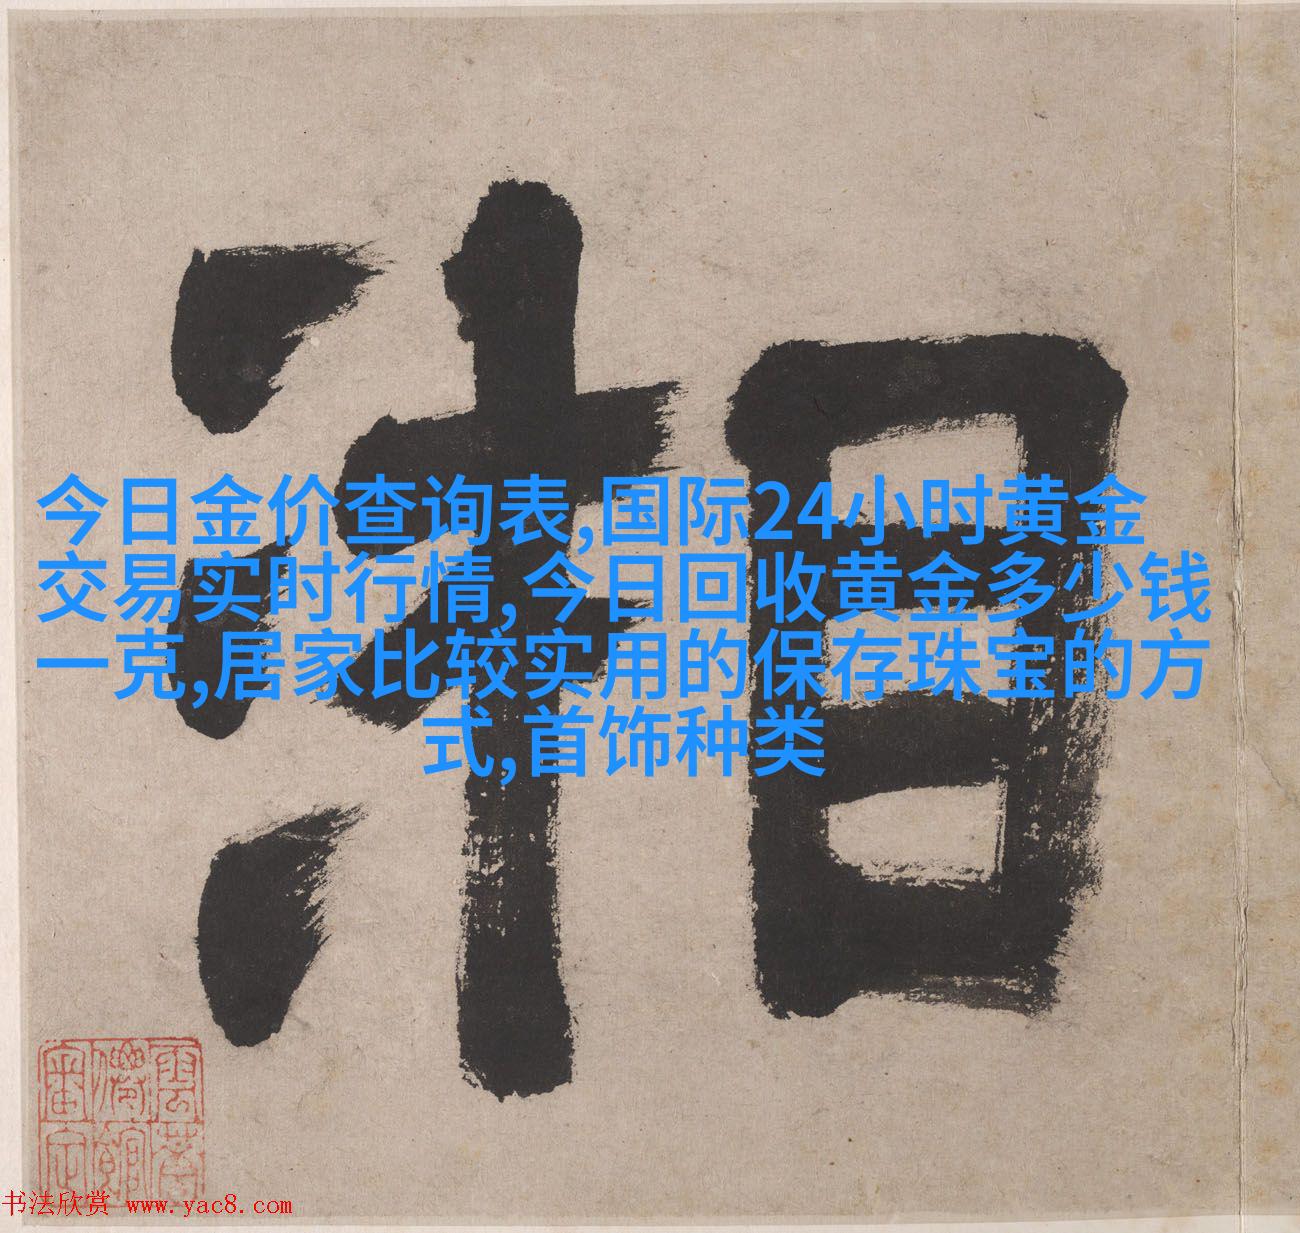 湘
今日金价查询表,国际24小时黄金
交易实时行情,今日回收黄金多少钱
一克,居家比较实用的保存珠宝的方
式,首饰种类
书法欣赏 www.yac8.com